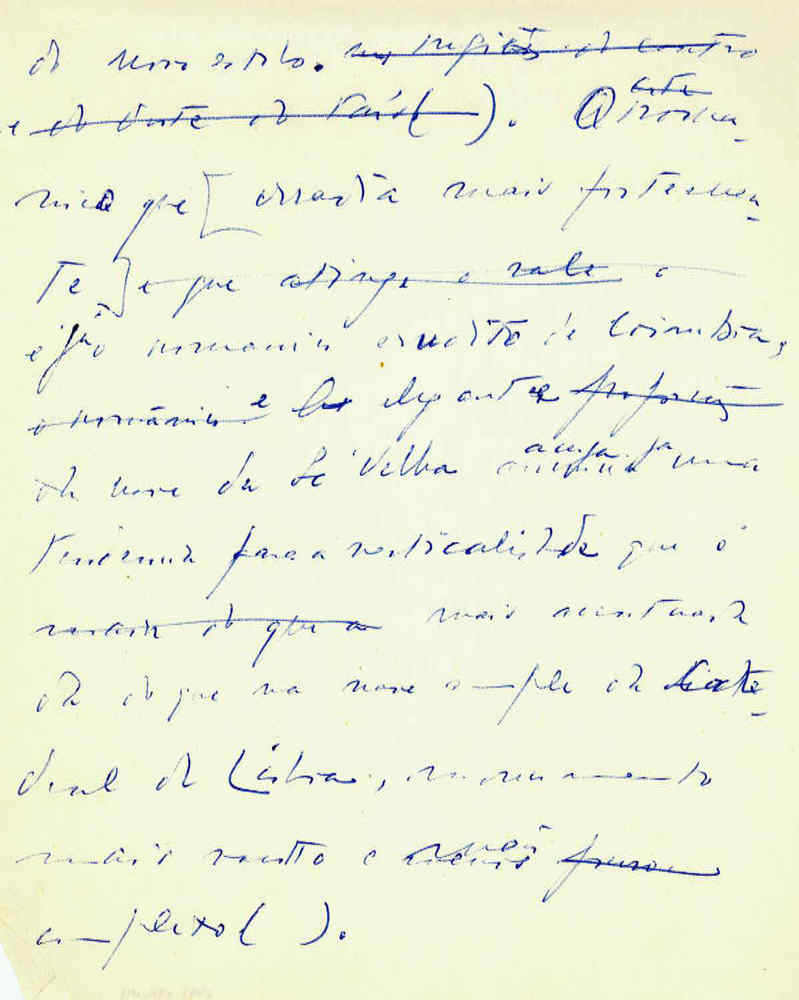 do novo estilo. nas regiões do centro
e do Norte do País ( ). A arte romà-
nica que [ irradia mais fortemen-
te ] e que atinge o vale o
é já o românico erudito de Coimbra,
o românico e elegante proporção
da nave da Sé Velha acusa já uma
tendência para a verticalidade que é
do que a mais acentuada
do que na nave ampla da Cate-
dral de Lisboa, monumento
mais vasto e mais
complexo ( ).